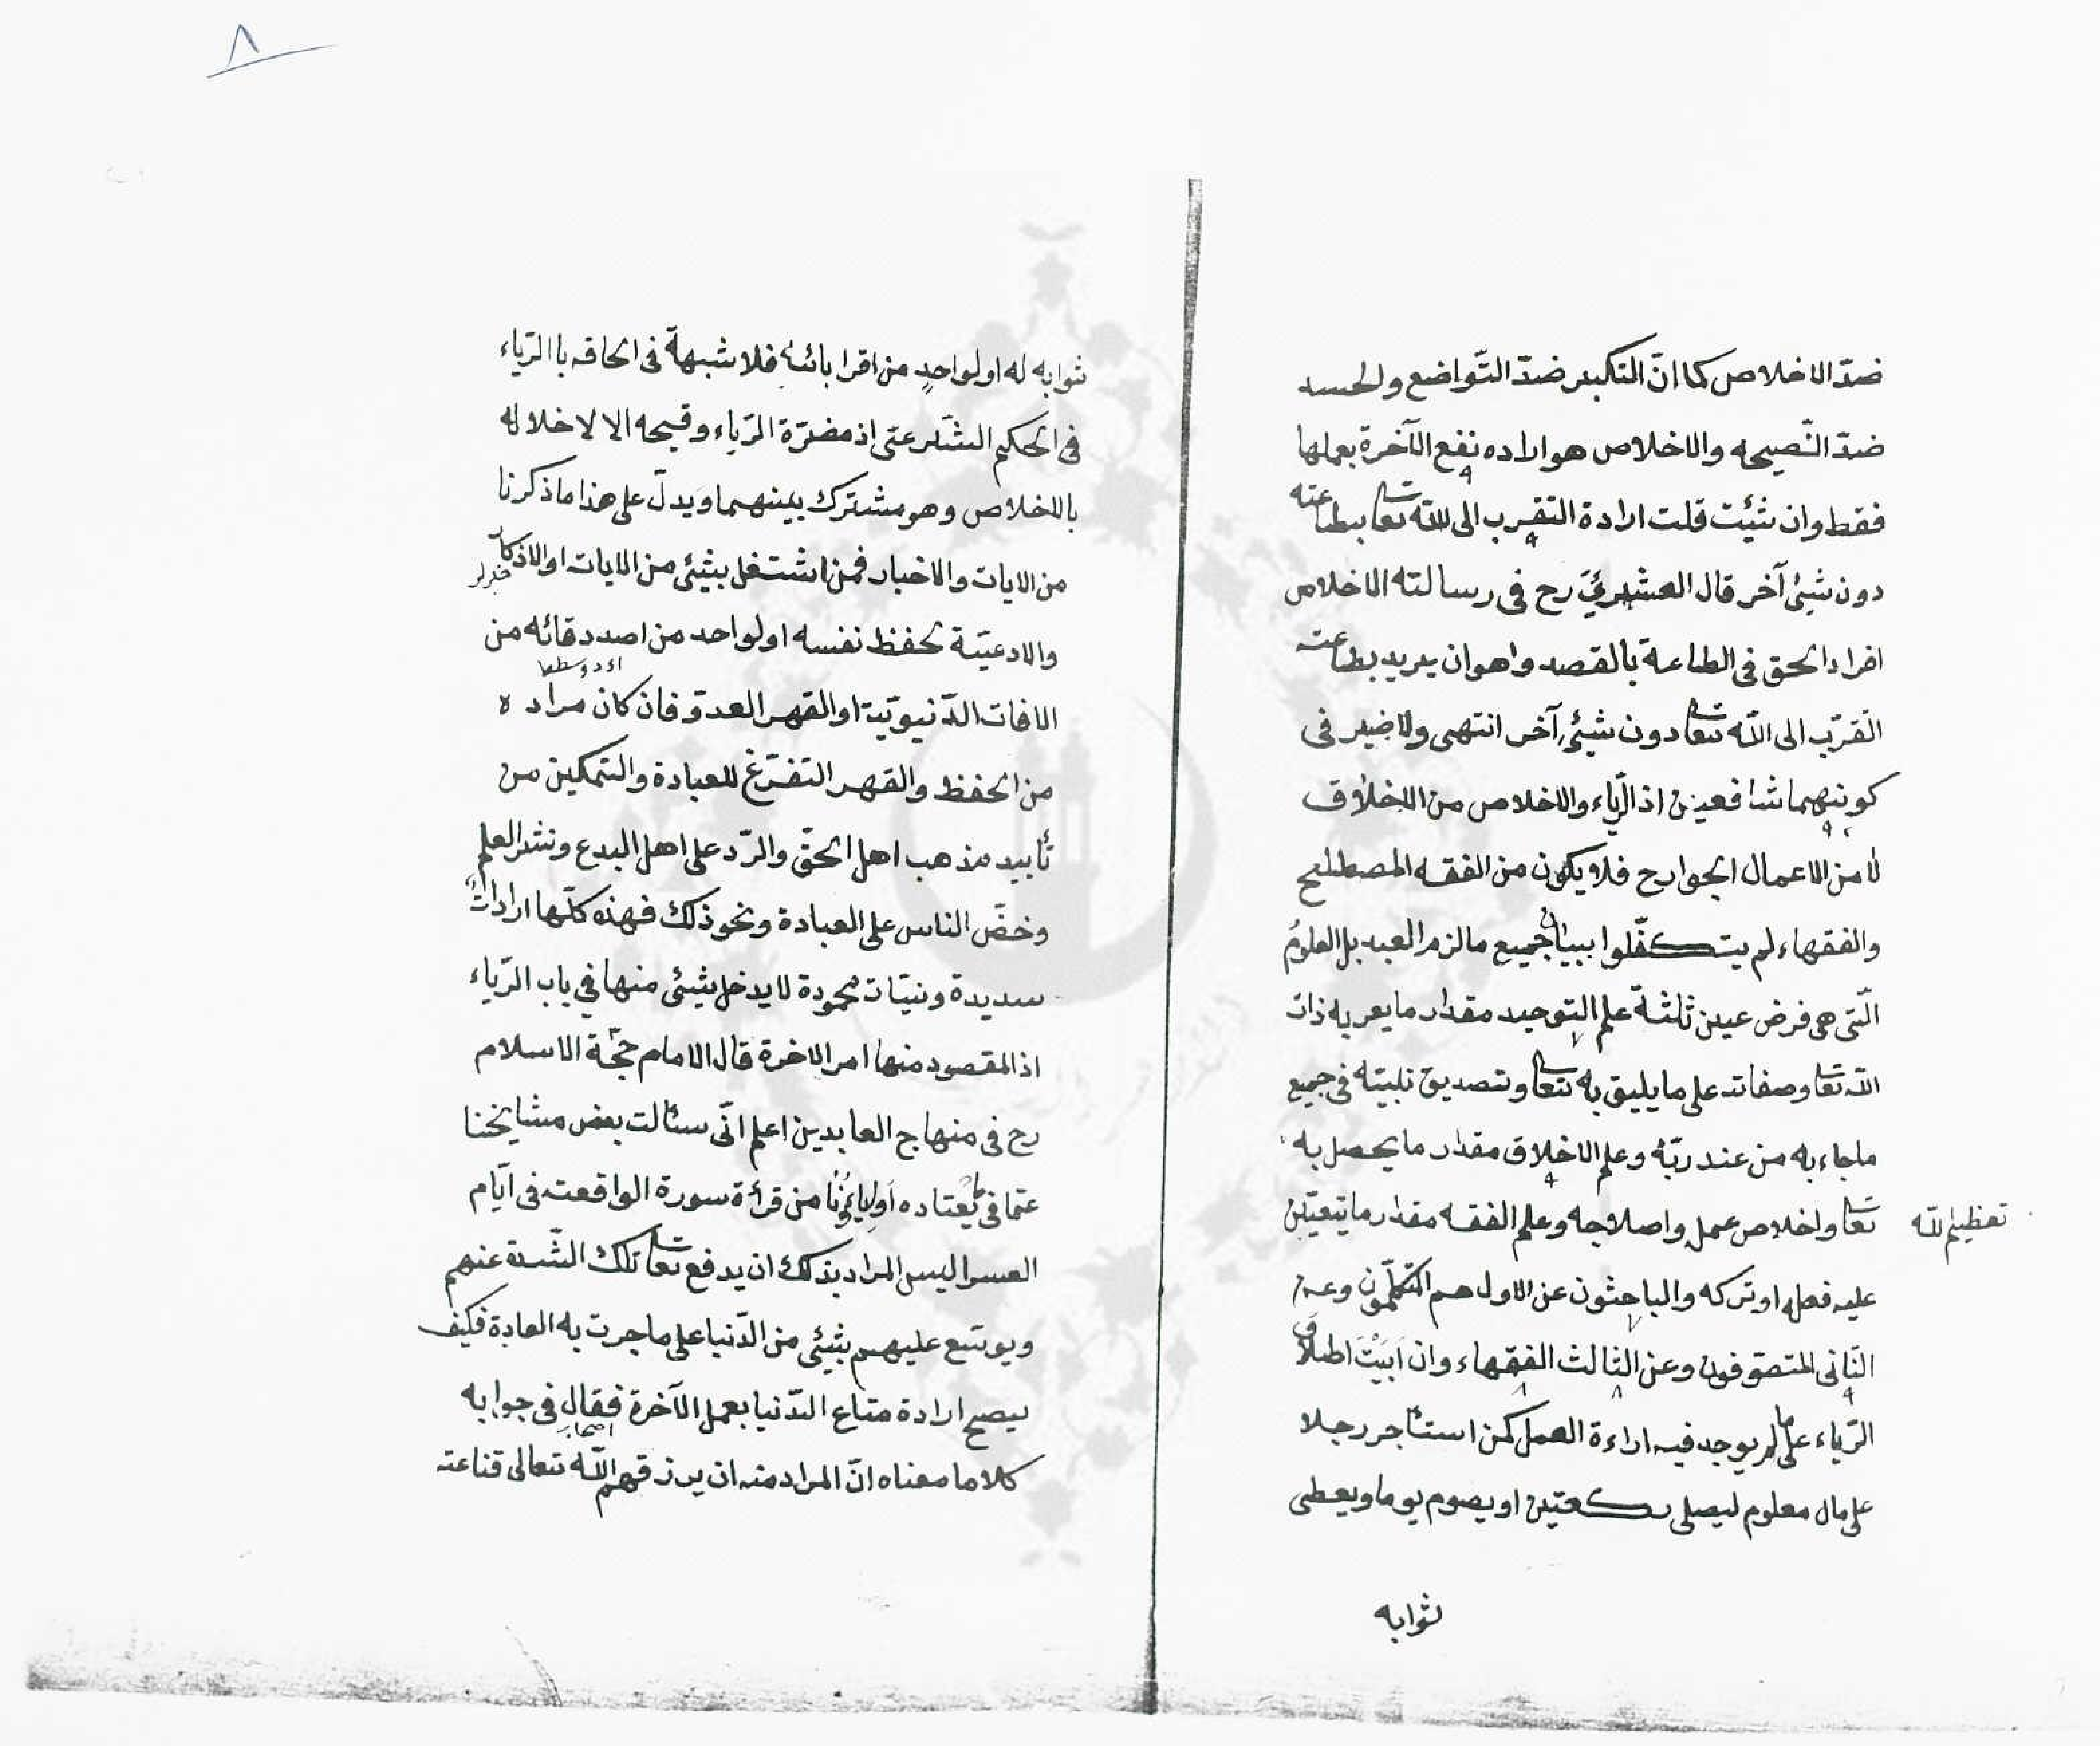 ٨
ضدّ الاخلاص كما انّ التكبر ضدّ التّواضع والحسد
ضدّ النّصيحه والاخلاص هو اراده نفع الآخرة بعملها
فقط وان شئت قلت ارادة التقرب الى اللّه تعا بطاعته
دون شئ آخر قال القشيرىّ رح فى رسالته الاخلاص
افراد الحق فى الطاعة بالقصد واهوان يريد بطاعته
القرّب الى اللّه تعا دون شئ آخر انتهى ولا ضير فى
كونهما شافعين اذ الرّياء والاخلاص من الاخلاق
لا من الاعمال الجوارح فلا يكون من الفقه المصطلح
والفقهاء لم يتكفّلوا ببيان جميع ما لزم العبد بل العلومُ
الّتى هى فرض عين ثلثة علم التوحيد مقدار ما يعر به ذات
اللّه تعا وصفاته على ما يليق به تعا وتصديق نبيته فى جميع
ماجاء به من عند ربّه وعلم الاخلاق مقدار ما يحصل به
تعظيم للّه
تعا واخلاص عمل واصلاحه وعلم الفقه مقدار ما يتعيّن
عليه فعله او تركه والباحثون عن الاول هم المتكلّمون وعن
الثانى المتصوّفون وعن الثالث الفقهاء وان اَبَيْتَ اطلاق
الرّياء على ما لم يوجد فيه اراءة العمل كمن استأجر رجلا
على مال معلوم ليصلى ركعتين او يصوم يوما ويعطى
ثوابه
ثوابه له او لواحدٍ من اقرابائه فلا شبهة فى الحاقه باالرّياء
فى الحكم الشّرعىّ اذ مضرّة الرّياء وقبحه الا لاخلاله
بالاخلاص وهو مشترك بينهما ويدلّ على هذا ما ذكرنا
من الايات والاخبار فمن اشتغل بشئ من الايات او الاذكار
والادعيّة لحفظ نفسه او لواحد من اصدقائه من
الافات الدّنيويّة او القهر العدوّ فان كان مراده
من الحفظ والقهر التفرّغ للعبادة والتمكين من
تأييد مذهب اهل الحقّ والرّد على اهل البدع ونشر العلم
وخضّ الناس على العبادة ونحو ذلك فهذه كلّها ارادات
سديدة ونيّات محمودة لا يدخل شئ منها فى باب الرّياء
اذ المقصود منها امر الاخرة قال الامام حجّة الاسلام
رح فى منهاج العابدين اعلم انّى سئالت بعض مشايخنا
عمّا فى يعتاده اوليائنا من قرأة سورة الواقعته فى ايّام
العسر اليس المراد بذلك ان يدفع تعا تلك الشّدة عنهم
ويوسّع عليهم بشئ من الدّنيا على ما جرت به العادة فكيف
يصح ارادة متاع الدّنيا بعمل الآخرة فقال فى جوابه
كلاما معناه انّ المراد منه ان يرزقهم اللّه تعالى قناعته